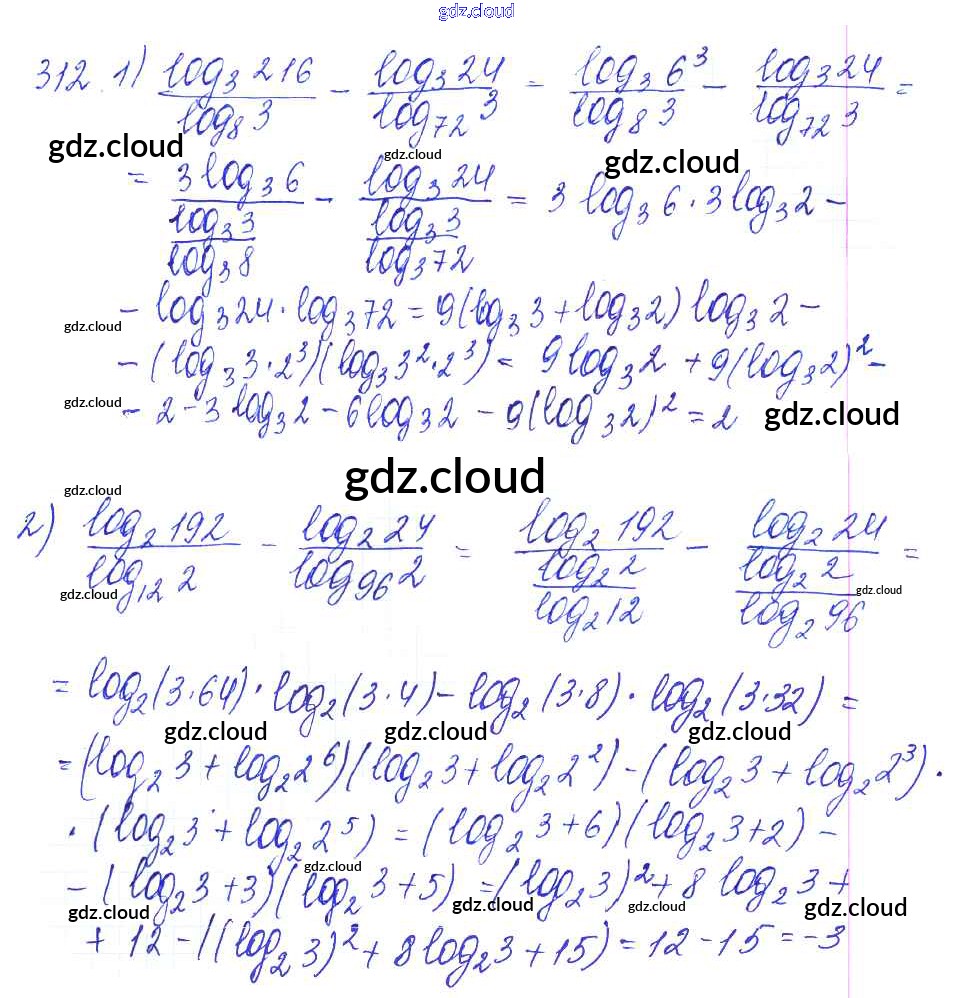 gdz.cloud
312. 1) log₃ 216 / log₈ 3 - log₃ 24 / log₇₂ 3 = log₃ 6³ / log₈ 3 - log₃ 24 / log₇₂ 3 =
gdz.cloud gdz.cloud gdz.cloud
= 3 log₃ 6 / (log₃ 3 / log₃ 8) - log₃ 24 / (log₃ 3 / log₃ 72) = 3 log₃ 6 · 3 log₃ 2 -
- log₃ 24 · log₃ 72 = 9(log₃ 3 + log₃ 2) log₃ 2 -
gdz.cloud
- (log₃ 3·2³)(log₃ 3²·2³) = 9 log₃ 2 + 9(log₃ 2)² -
gdz.cloud
- 2 - 3 log₃ 2 - 6 log₃ 2 - 9(log₃ 2)² = 2
gdz.cloud
gdz.cloud
gdz.cloud
2) log₂ 192 / log₁₂ 2 - log₂ 24 / log₉₆ 2 = log₂ 192 / (log₂ 2 / log₂ 12) - log₂ 24 / (log₂ 2 / log₂ 96) =
gdz.cloud gdz.cloud
= log₂(3·64) · log₂(3·4) - log₂(3·8) · log₂(3·32) =
gdz.cloud gdz.cloud gdz.cloud
= (log₂ 3 + log₂ 2⁶)(log₂ 3 + log₂ 2²) - (log₂ 3 + log₂ 2³) ·
· (log₂ 3 + log₂ 2⁵) = (log₂ 3 + 6)(log₂ 3 + 2) -
gdz.cloud
- (log₂ 3 + 3)(log₂ 3 + 5) = (log₂ 3)² + 8 log₂ 3 +
gdz.cloud gdz.cloud gdz.cloud gdz.cloud gdz.cloud
+ 12 - ((log₂ 3)² + 8 log₂ 3 + 15) = 12 - 15 = -3